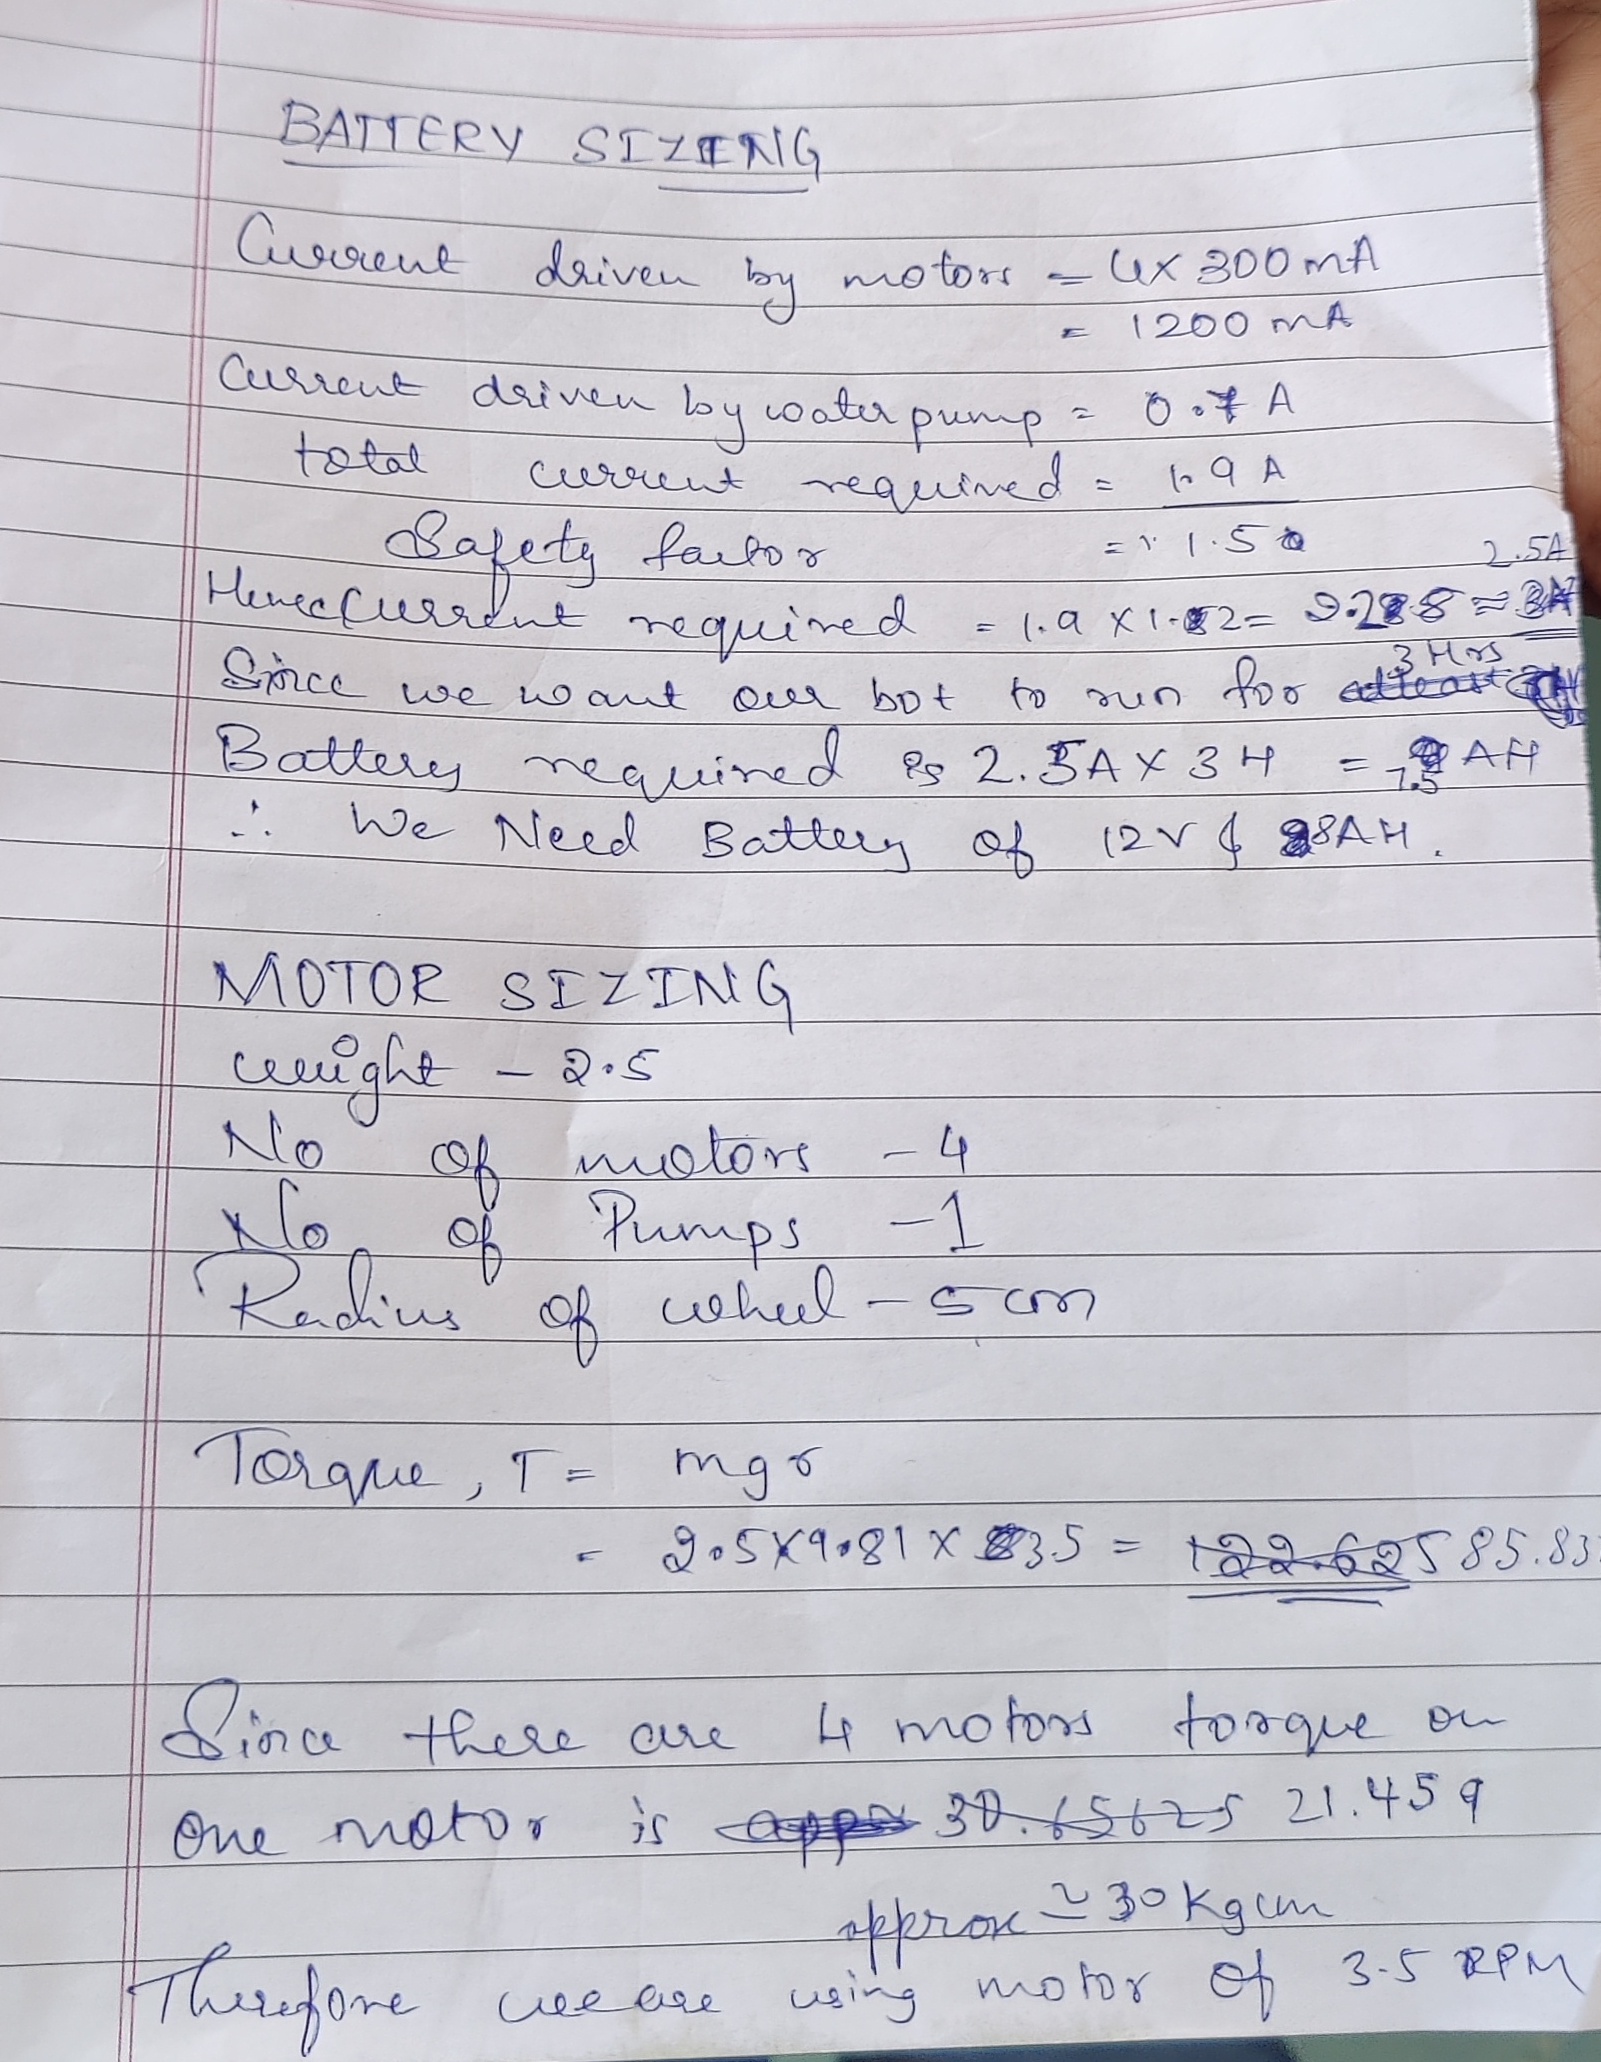 BATTERY SIZING
Current driven by motors = 4x 300 mA
= 1200 mA
Current driven by water pump = 0.7 A
total current required = 1.9 A
Safety factor = 1.5
2.5A
Hence Current required = 1.9 x 1.2 = 2.28 ≈ 3A
3 Hrs
Since we want our bot to run for atleast
Battery required is 2.5A x 3 H = 7.5 AH
∴ We Need Battery of 12V & 8AH.
MOTOR SIZING
weight - 2.5
No of motors - 4
No of Pumps - 1
Radius of wheel - 5 cm
Torque, T = mgr
= 2.5x9.81 x 3.5 = 122.625 85.83
Since there are 4 motors torque on
one motor is 30.65625 21.459
approx ≃ 30 Kgcm
Therefore we are using motor of 3.5 RPM